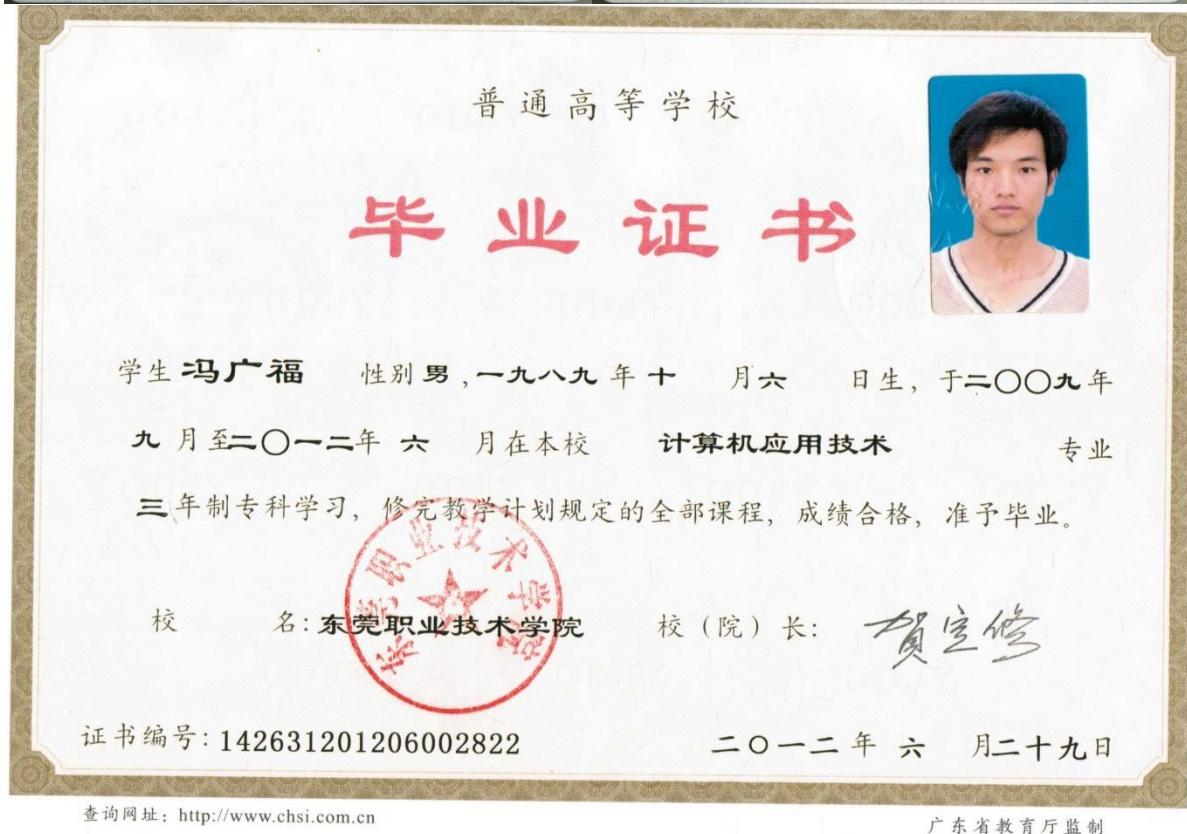 普通高等学校
毕业证书
学生 冯广福 性别 男 ,一九八九 年 十 月 六 日生, 于二〇〇九 年
九 月至二〇一二年 六 月在本校 计算机应用技术 专业
三年制专科学习, 修完教学计划规定的全部课程, 成绩合格, 准予毕业。
东莞职业技术学院
校 名: 东莞职业技术学院 校(院)长: 贺定修
证书编号: 142631201206002822 二〇一二 年 六 月二十九日
查询网址: http://www.chsi.com.cn 广东省教育厅监制